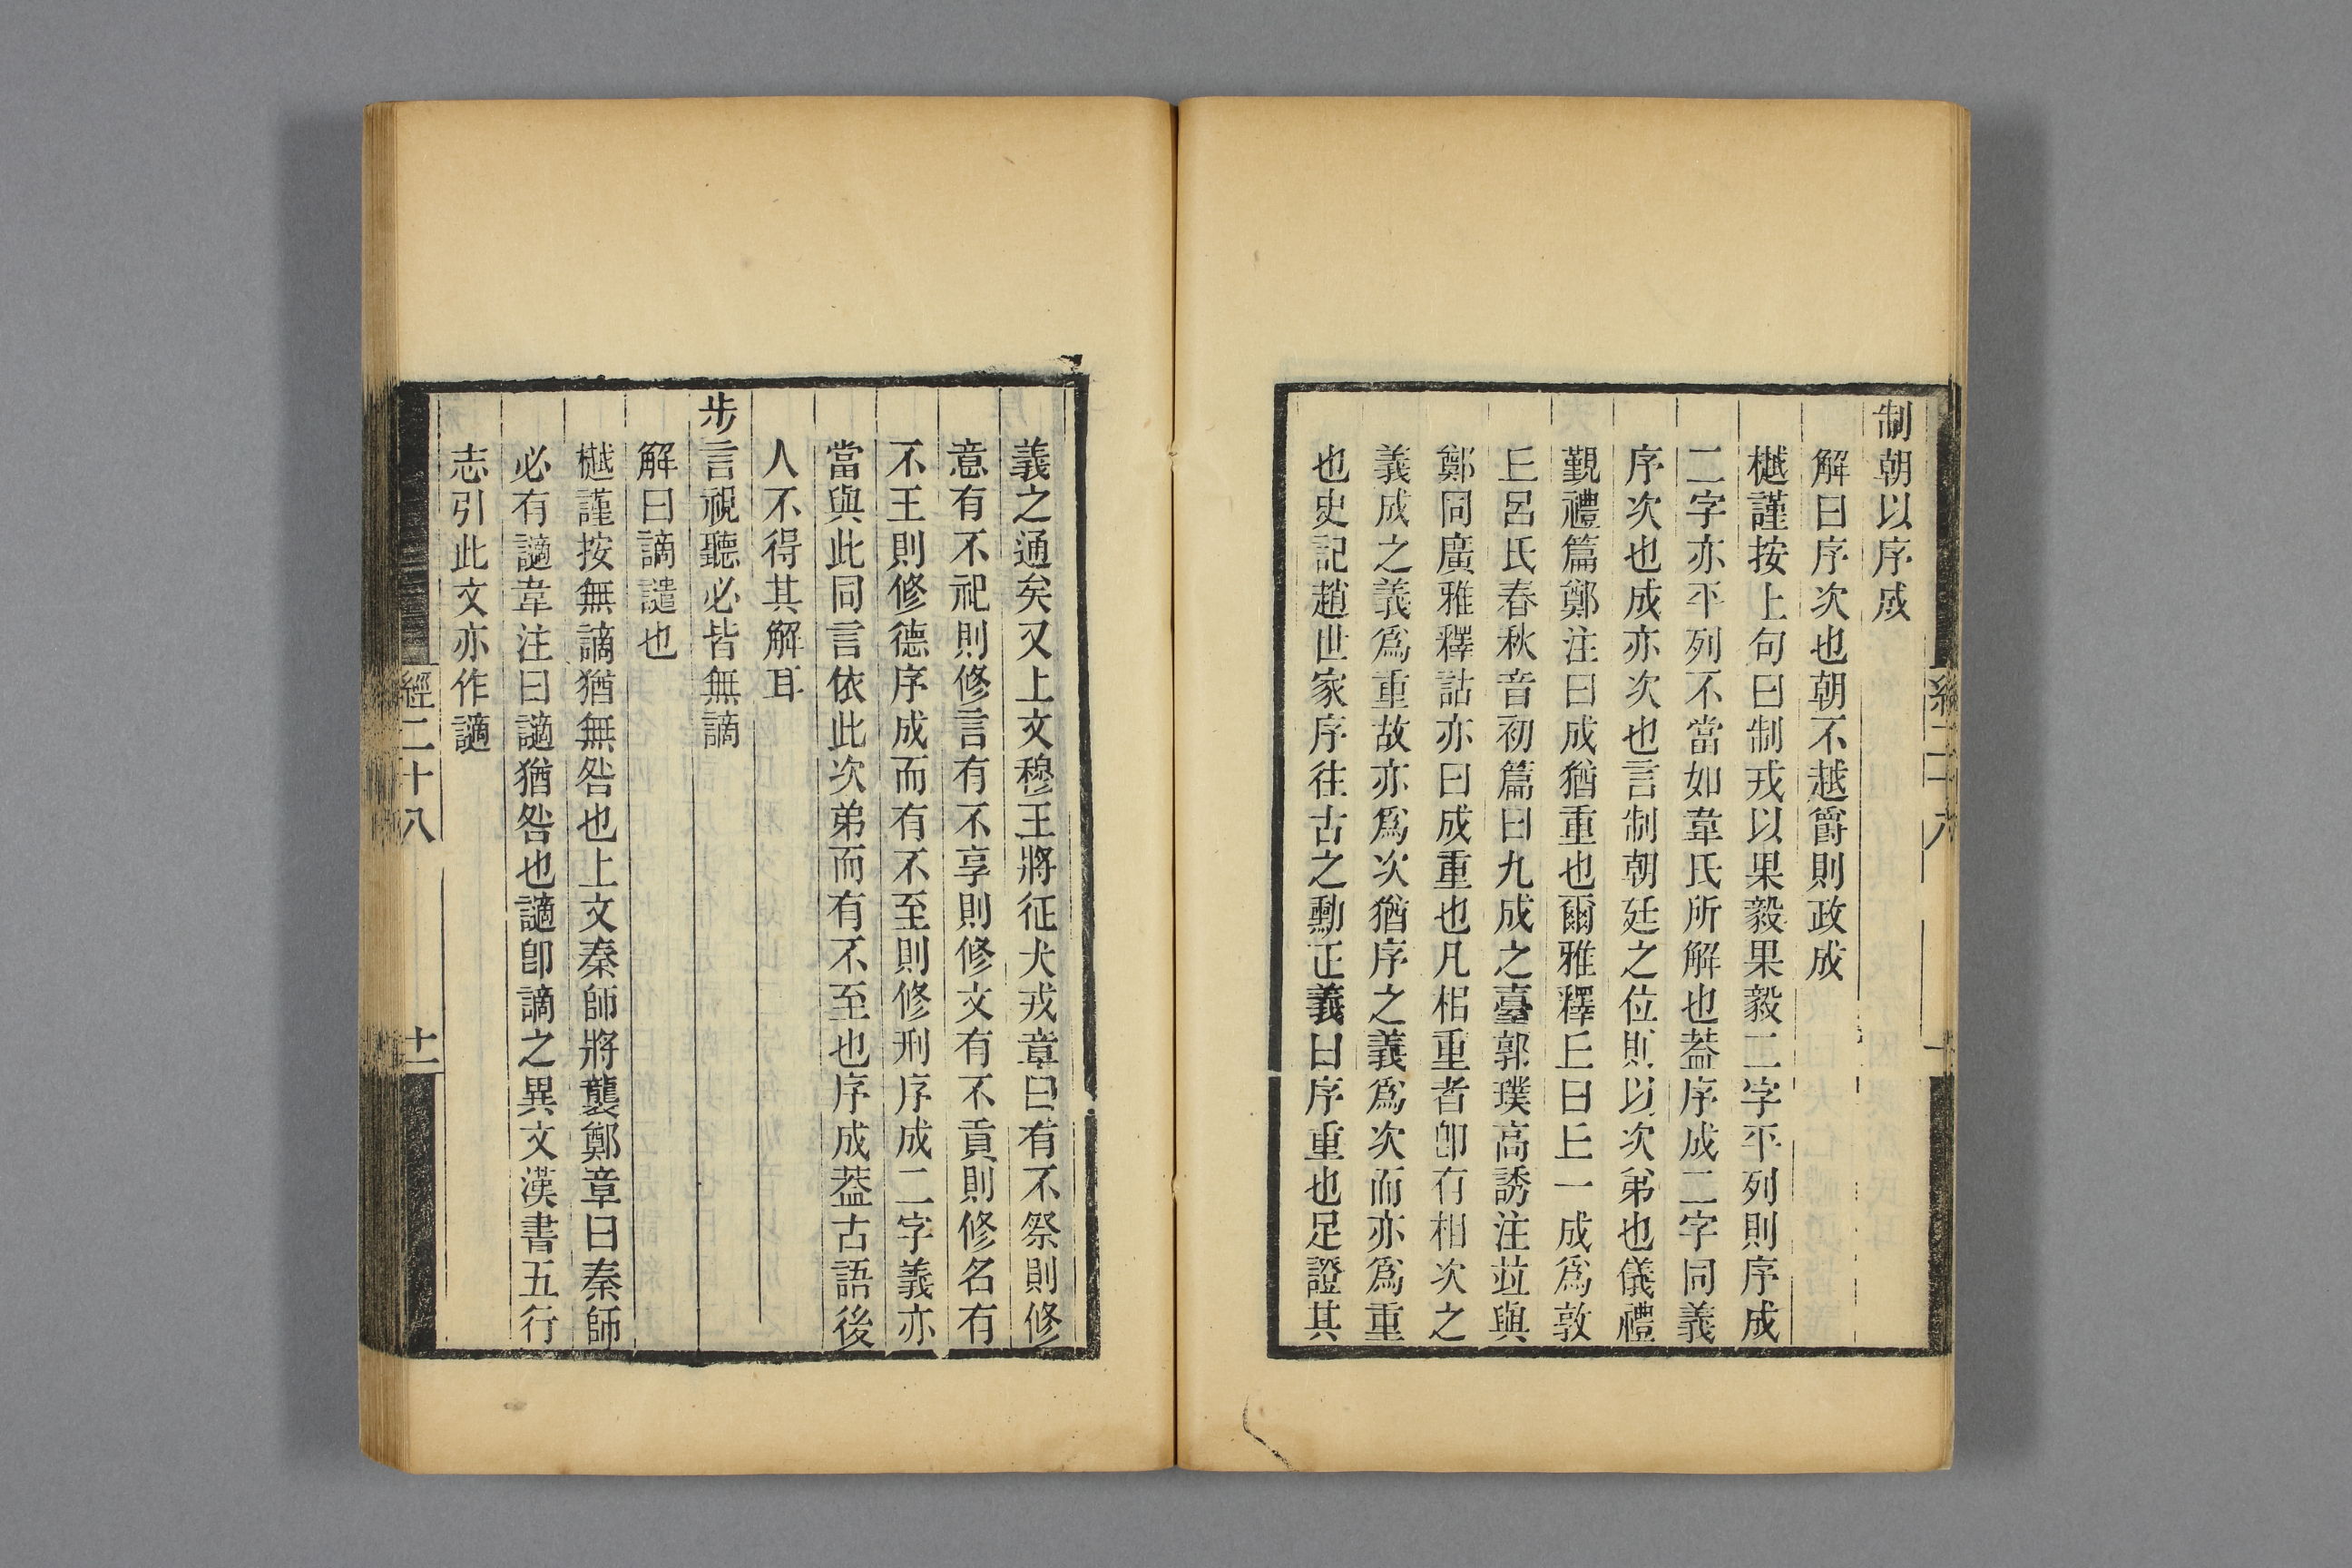 制朝以序成
解曰序次也朝不越爵則政成
樾謹按上句曰制戎以果毅果毅二字平列則序成
二字亦平列不當如韋氏所解也蓋序成二字同義
序次也成亦次也言制朝廷之位則以次弟也儀禮
覲禮篇鄭注曰成猶重也爾雅釋丘曰丘一成爲敦
丘呂氏春秋音初篇曰九成之臺郭璞高誘注竝與
鄭同廣雅釋詁亦曰成重也凡相重者卽有相次之
義成之義爲重故亦爲次猶序之義爲次而亦爲重
也史記趙世家序往古之勳正義曰序重也足證其
義之通矣又上文穆王將征犬戎章曰有不祭則修
意有不祀則修言有不享則修文有不貢則修名有
不王則修德序成而有不至則修刑序成二字義亦
當與此同言依此次弟而有不至也序成葢古語後
人不得其解耳
步言視聽必皆無謫
解曰謫譴也
樾謹按無謫猶無咎也上文秦師將襲鄭章曰秦師
必有讁韋注曰讁猶咎也讁卽謫之異文漢書五行
志引此文亦作讁
經二十八
十一